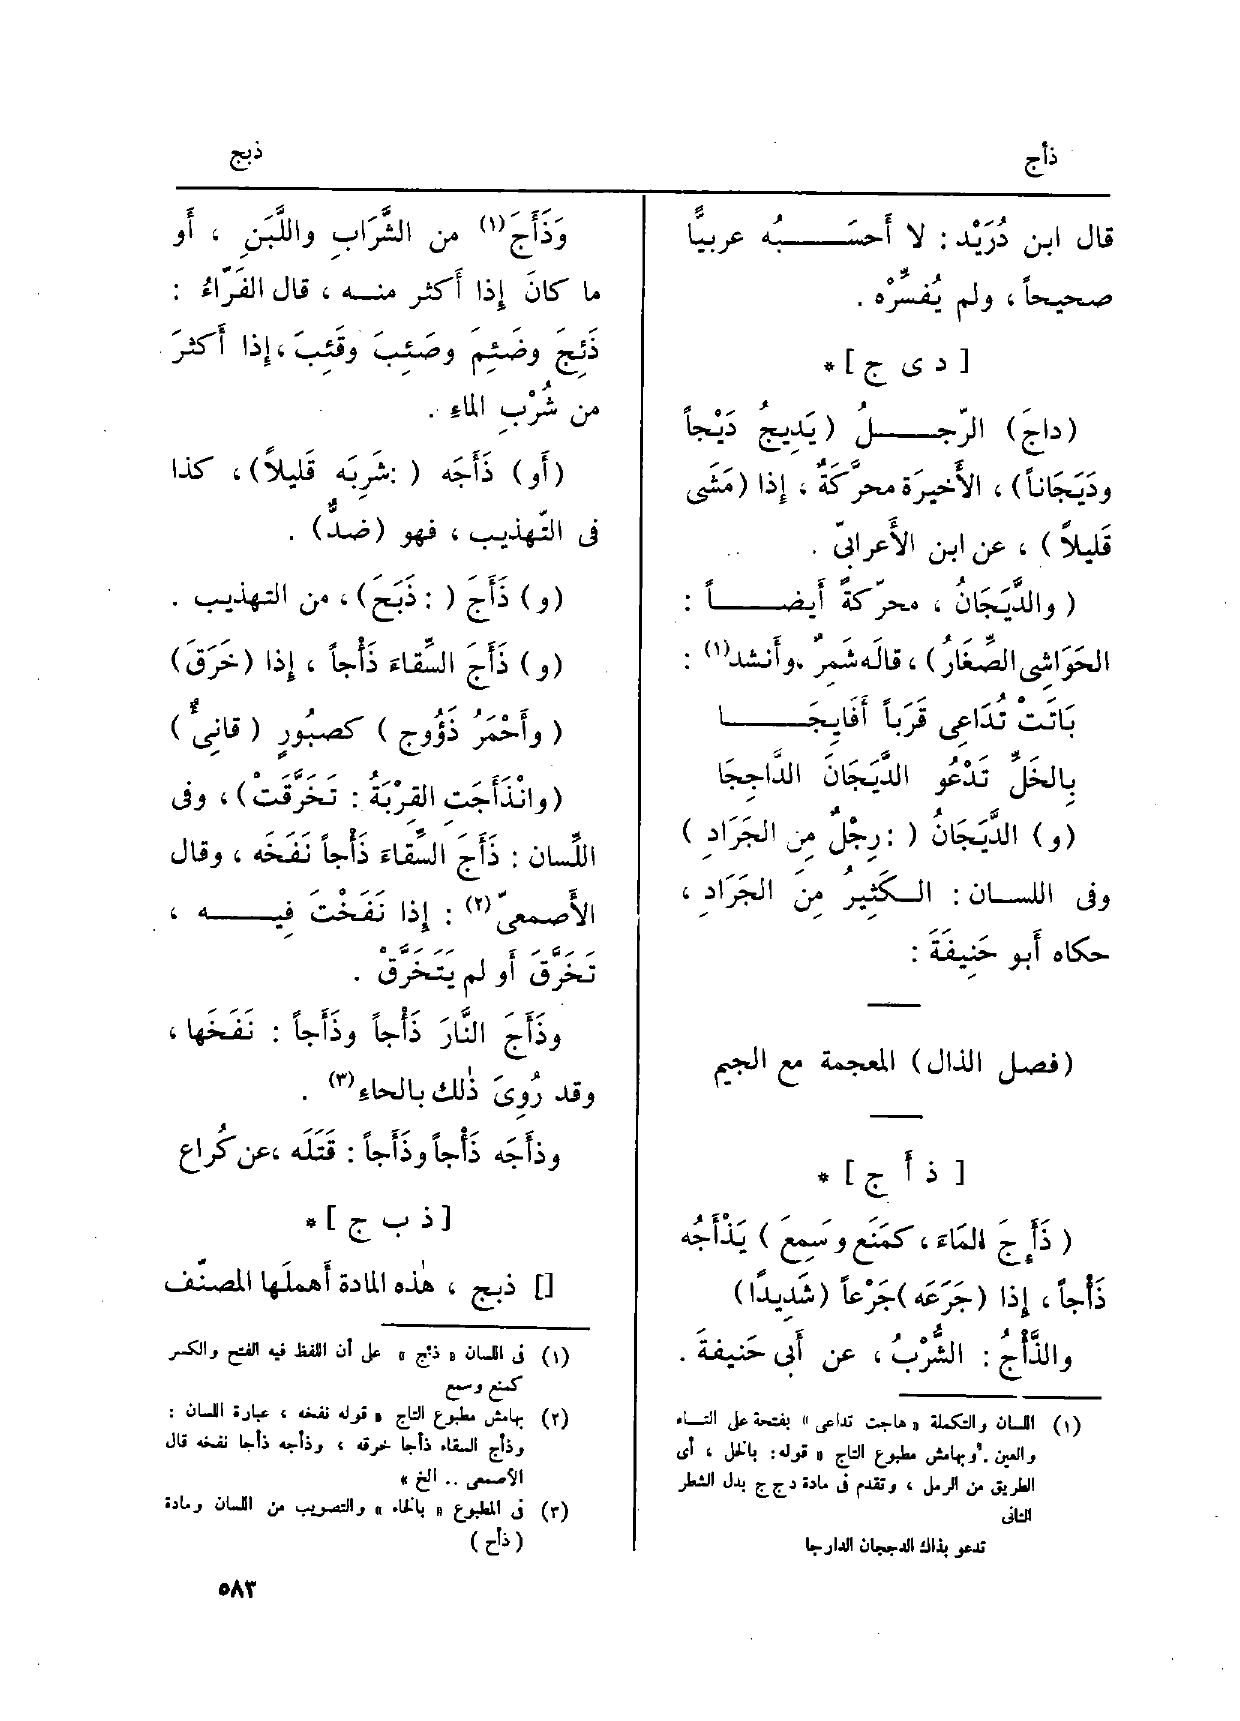 ذأج
ذبج
قال ابن دُرَيْد : لا أَحسَـبُه عربيًّا
صحيحاً ، ولم يُفسِّرْه .
[ د ى ج ] *
(داجَ) الرّجـلُ (يَدِيجُ دَيْجاً
ودَيَجَاناً) ، الأَخيرَة محرَّكَةٌ ، إذا (مَشَى
قَليلاً) ، عن ابن الأَعرابىّ .
( والدَّيَجَانُ ، محرّكةً أَيضـاً :
الحَوَاشِى الصِّغَارُ) ، قاله شَمِرٌ ، وأَنشد(١) :
بَاتَتْ تُدَاعِى قَرَباً أَفَايِجَـا
بِالخَلِّ تَدْعُو الدَّيَجَانَ الدَّاجِجَا
(و) الدَّيَجَانُ ( : رِجْلٌ مِن الجَرَادِ )
وفى اللسـان : الـكَثِيرُ مِنَ الجَرَادِ ،
حكاه أَبو حَنِيفَةَ :
(فصل الذال) المعجمة مع الجيم
[ ذ أ ج ] *
( ذَأَجَ المَاءَ ، كمَنَع وسَمِعَ ) يَذْأَجُه
ذَأْجاً ، إذا (جَرَعَه) جَرْعاً (شَدِيدًا)
والذَّأْجُ : الشُّرْبُ ، عن أَبى حَنيفةَ .
(١) اللسان والتكملة « هاجت تداعى » بفتحة على التـاء
والعين . وبهامش مطبوع التاج « قوله : بالخل ، أى
الطريق من الرمل ، وتقدم فى مادة د ج ج بدل الشطر
الثانى
تدعو بذاك الدججان الدارجا
وَذَأَجَ(١) من الشَّرَابِ واللَّبَنِ ، أَو
ما كانَ إِذا أَكثر منـه ، قال الفَرَّاءُ :
ذَئِجَ وضَئِمَ وصَئِبَ وقَئِبَ ، إِذا أَكثرَ
من شُرْبِ الماءِ .
(أَو) ذَأَجَه ( : شَرِبَه قَليلاً) ، كذا
فى التّهذيب ، فهو (ضدٌّ) .
(و) ذَأَجَ ( : ذَبَحَ) ، من التهذيب .
(و) ذَأَجَ السِّقَاءَ ذَأْجاً ، إذا (خَرَقَ)
( وأَحْمَرُ ذَؤُوج ) كصبُورٍ ( قانىءٌ )
(وانْذَأَجَتِ القِرْبَةُ : تَخَرَّقَتْ) ، وفى
اللِّسان : ذَأَجَ السِّقَاءَ ذَأْجاً نَفَخَه ، وقال
الأَصمعىّ(٢) : إِذا نَفَخْتَ فِيـه ،
تَخَرَّقَ أَو لم يَتَخَرَّقْ .
وذَأَجَ النَّارَ ذَأْجاً وذَأَجاً : نَفَخَها ،
وقد رُوِىَ ذٰلك بالحاءِ(٣) .
وذأَجَه ذَأْجاً وذَأَجاً : قَتَلَه ، عن كُراع
[ ذ ب ج ] *
[] ذبج ، هٰذه المادة أَهملَها المصنّف
(١) فى اللسان « ذئج » على أن اللفظ فيه الفتح والكسر
كمنع وسمع
(٢) بهامش مطبوع التاج « قوله نفخه ، عبارة اللسان :
وذأج السقاء ذأجا خرقه ، وذأجه ذأجا نفخه قال
الأصمعى .. الخ »
(٣) فى المطبوع « بالخاء » والتصويب من اللسان ومادة
( ذأح )
٥٨٣